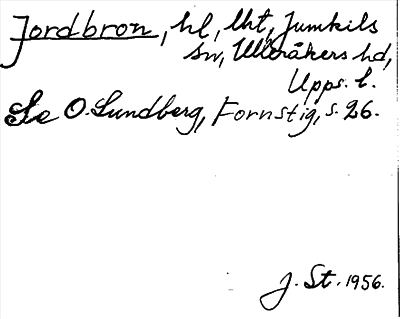 Jordbron, hl, Uht, Jumkils
sn, Ulleråkers hd,
Upps. l.
Se O. Lundberg, Fornstig, s. 26.
J. St. 1956.